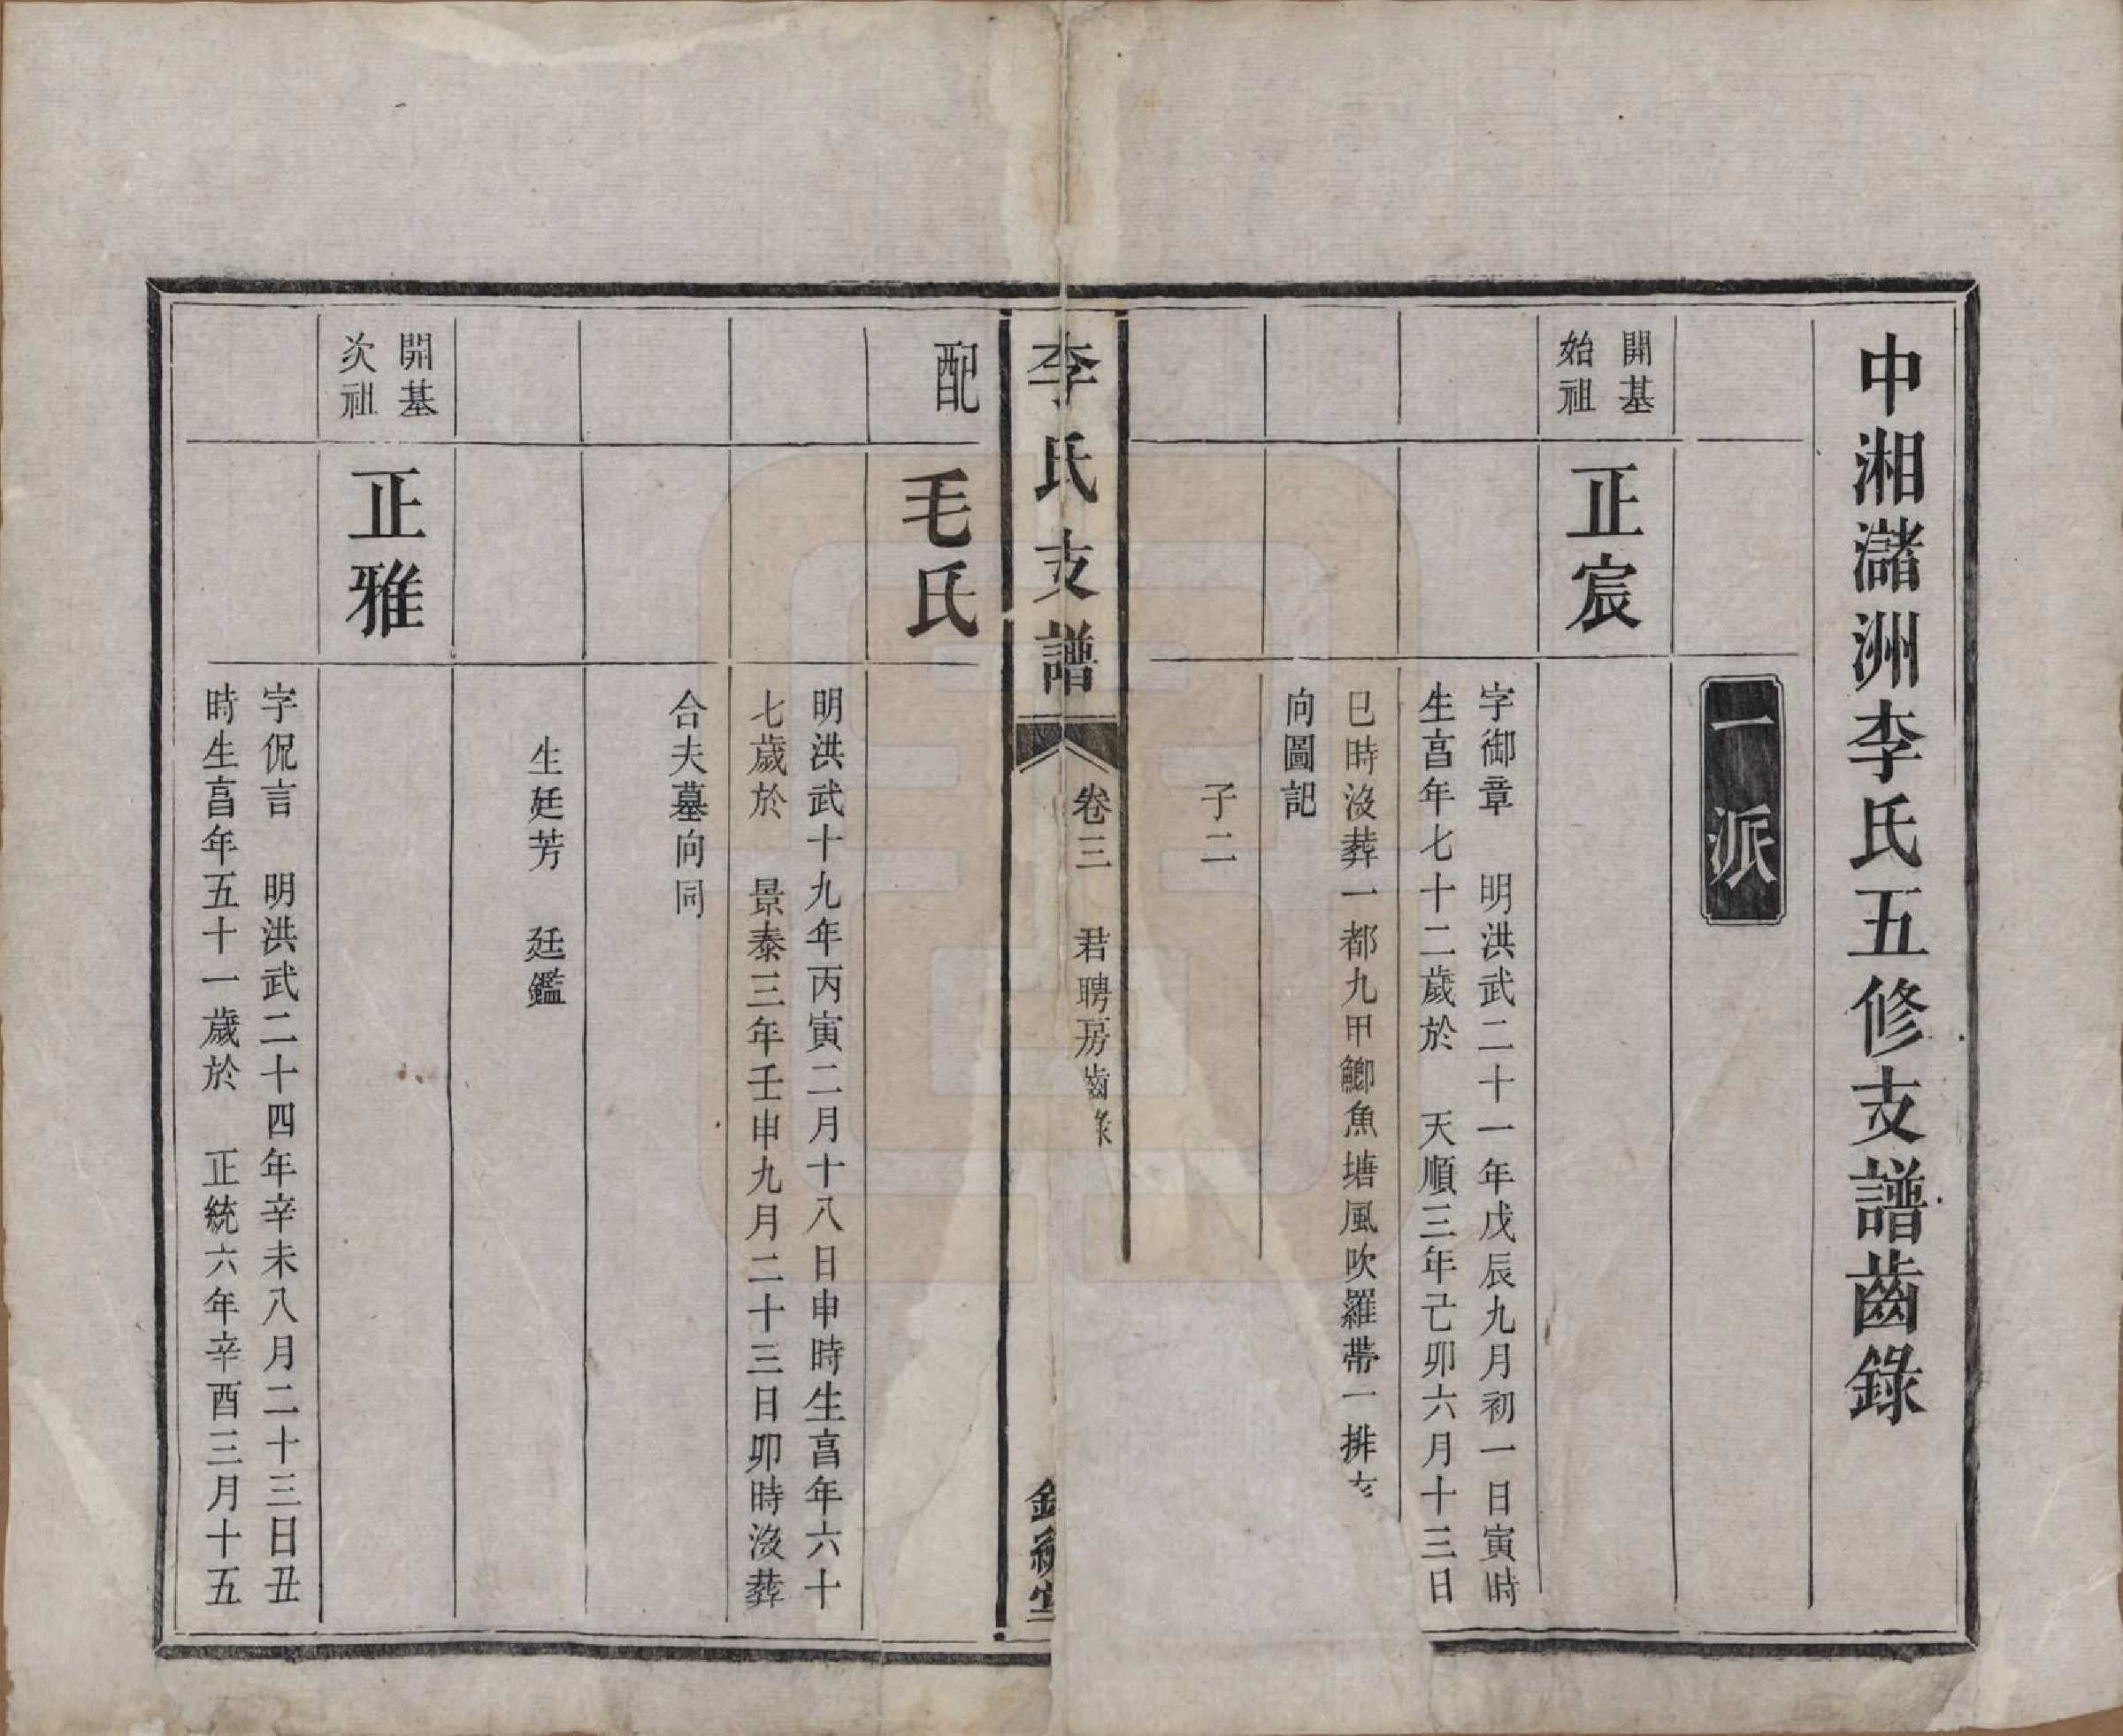 中湘瀦洲李氏五修支譜齒錄
一派
開基
始祖
正宸
字御章　明洪武二十一年戊辰九月初一日寅時
生亯年七十二歲於　天順三年己卯六月十三日
巳時沒葬一都九甲鯽魚塘風吹羅帶一排
向圖記
子二
李氏支譜
卷三　君聘房齒錄
配
毛氏
明洪武十九年丙寅二月十八日申時生亯年六十
七歲於　景泰三年壬申九月二十三日卯時沒葬
合夫墓向同
生廷芳　廷鑑
開基
次祖
正雅
字侃言　明洪武二十四年辛未八月二十三日丑
時生亯年五十一歲於　正統六年辛酉三月十五